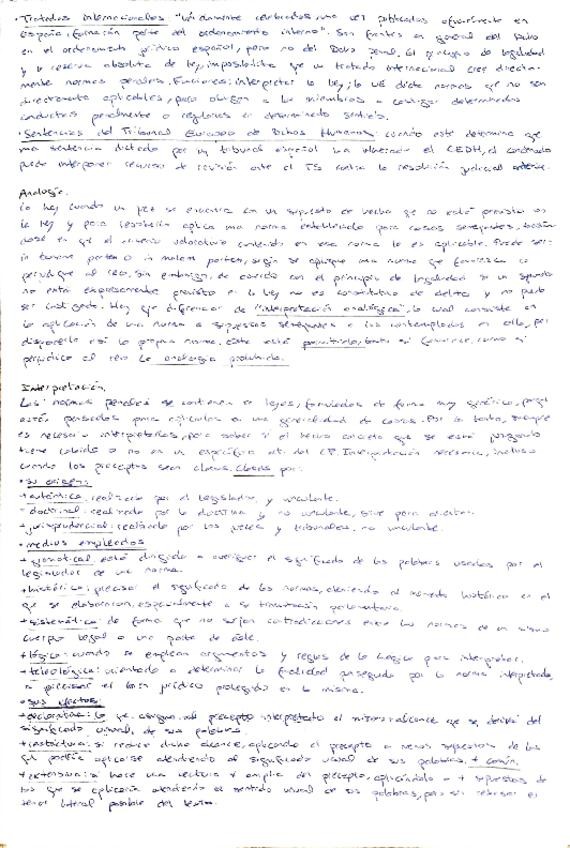 · Tratados internacionales "válidamente celebrados, una vez publicados oficialmente en
España, formarán parte del ordenamiento interno". Son fuentes en general del Dcho
en el ordenamiento jurídico español, pero no del Dcho penal. El principio de legalidad
y la reserva absoluta de ley imposibilita que un tratado internacional cree directa-
mente normas penales. Funciones: interpretar la ley; la UE dicta normas que no son
directamente aplicables, pero obligan a los miembros a castigar determinadas
conductas penalmente o regularlas en determinado sentido.
· Sentencias del Tribunal Europeo de Dchos Humanos: cuando este determine que
una sentencia dictada por un tribunal español ha vulnerado el CEDH, el condenado
puede interponer recurso de revisión ante el TS contra la resolución judicial
Analogía.
La hay cuando un juez se encuentra con un supuesto de hecho que no está previsto en
la ley y para resolverlo aplica una norma establecida para casos semejantes, basán-
dose en que el criterio valorativo contenido en esa norma le es aplicable. Puede ser:
in bonam partem o in malam partem, según se aplique una norma que favorezca o
perjudique al reo. Sin embargo, de acuerdo con el principio de legalidad si un supuesto
no está expresamente previsto en la ley no es constitutivo de delito y no puede
ser castigado. Hay que diferenciar de "interpretación analógica", la cual consiste en
la aplicación de una norma a supuestos semejantes a los contemplados en ella, por
disponerlo así la propia norma. Esta está permitida, tanto si favorece, como si
perjudica al reo. La analogía prohibida.
Interpretación.
Las normas penales se contienen en leyes, formuladas de forma muy genérica, porque
están pensadas para aplicarlas a una generalidad de casos. Por lo tanto, siempre
es necesario interpretarlas, para saber si el hecho concreto que se está juzgando
tiene cabida o no en un específico art. del CP. Interpretación necesaria, incluso
cuando los preceptos sean claros. Clases por:
· su origen:
+ auténtica: realizada por el legislador, y vinculante.
- doctrinal: realizada por la doctrina y no vinculante, sirve para
+ jurisprudencial: realizada por los jueces y tribunales, no vinculante.
· medios empleados
+ gramatical: está dirigida a averiguar el significado de las palabras usadas por el
legislador de una norma.
+ histórica: precisar el significado de las normas, atendiendo al momento histórico en el
que se elaboraron, especialmente a su tramitación parlamentaria.
+ sistemática: de forma que no surjan contradicciones entre las normas de un mismo
cuerpo legal o una parte de éste.
+ lógica: cuando se emplean argumentos y reglas de la lógica para interpretar.
+ teleológica: orientada a determinar la finalidad perseguida por la norma interpretada,
a precisar el bien jurídico protegido en la misma.
· sus efectos:
+ declarativa: la que asigna al precepto interpretado el mismo alcance que se deriva del
significado usual de sus palabras.
+ restrictiva: si reduce dicho alcance, aplicando el precepto a menos supuestos de los
que podría aplicarse atendiendo al significado usual de sus palabras. + común.
+ extensiva: si hace una lectura + amplia del precepto, aplicándolo a + supuestos de
los que se aplicaría atendiendo al sentido usual de sus palabras, pero sin rebasar el
tenor literal posible del texto.